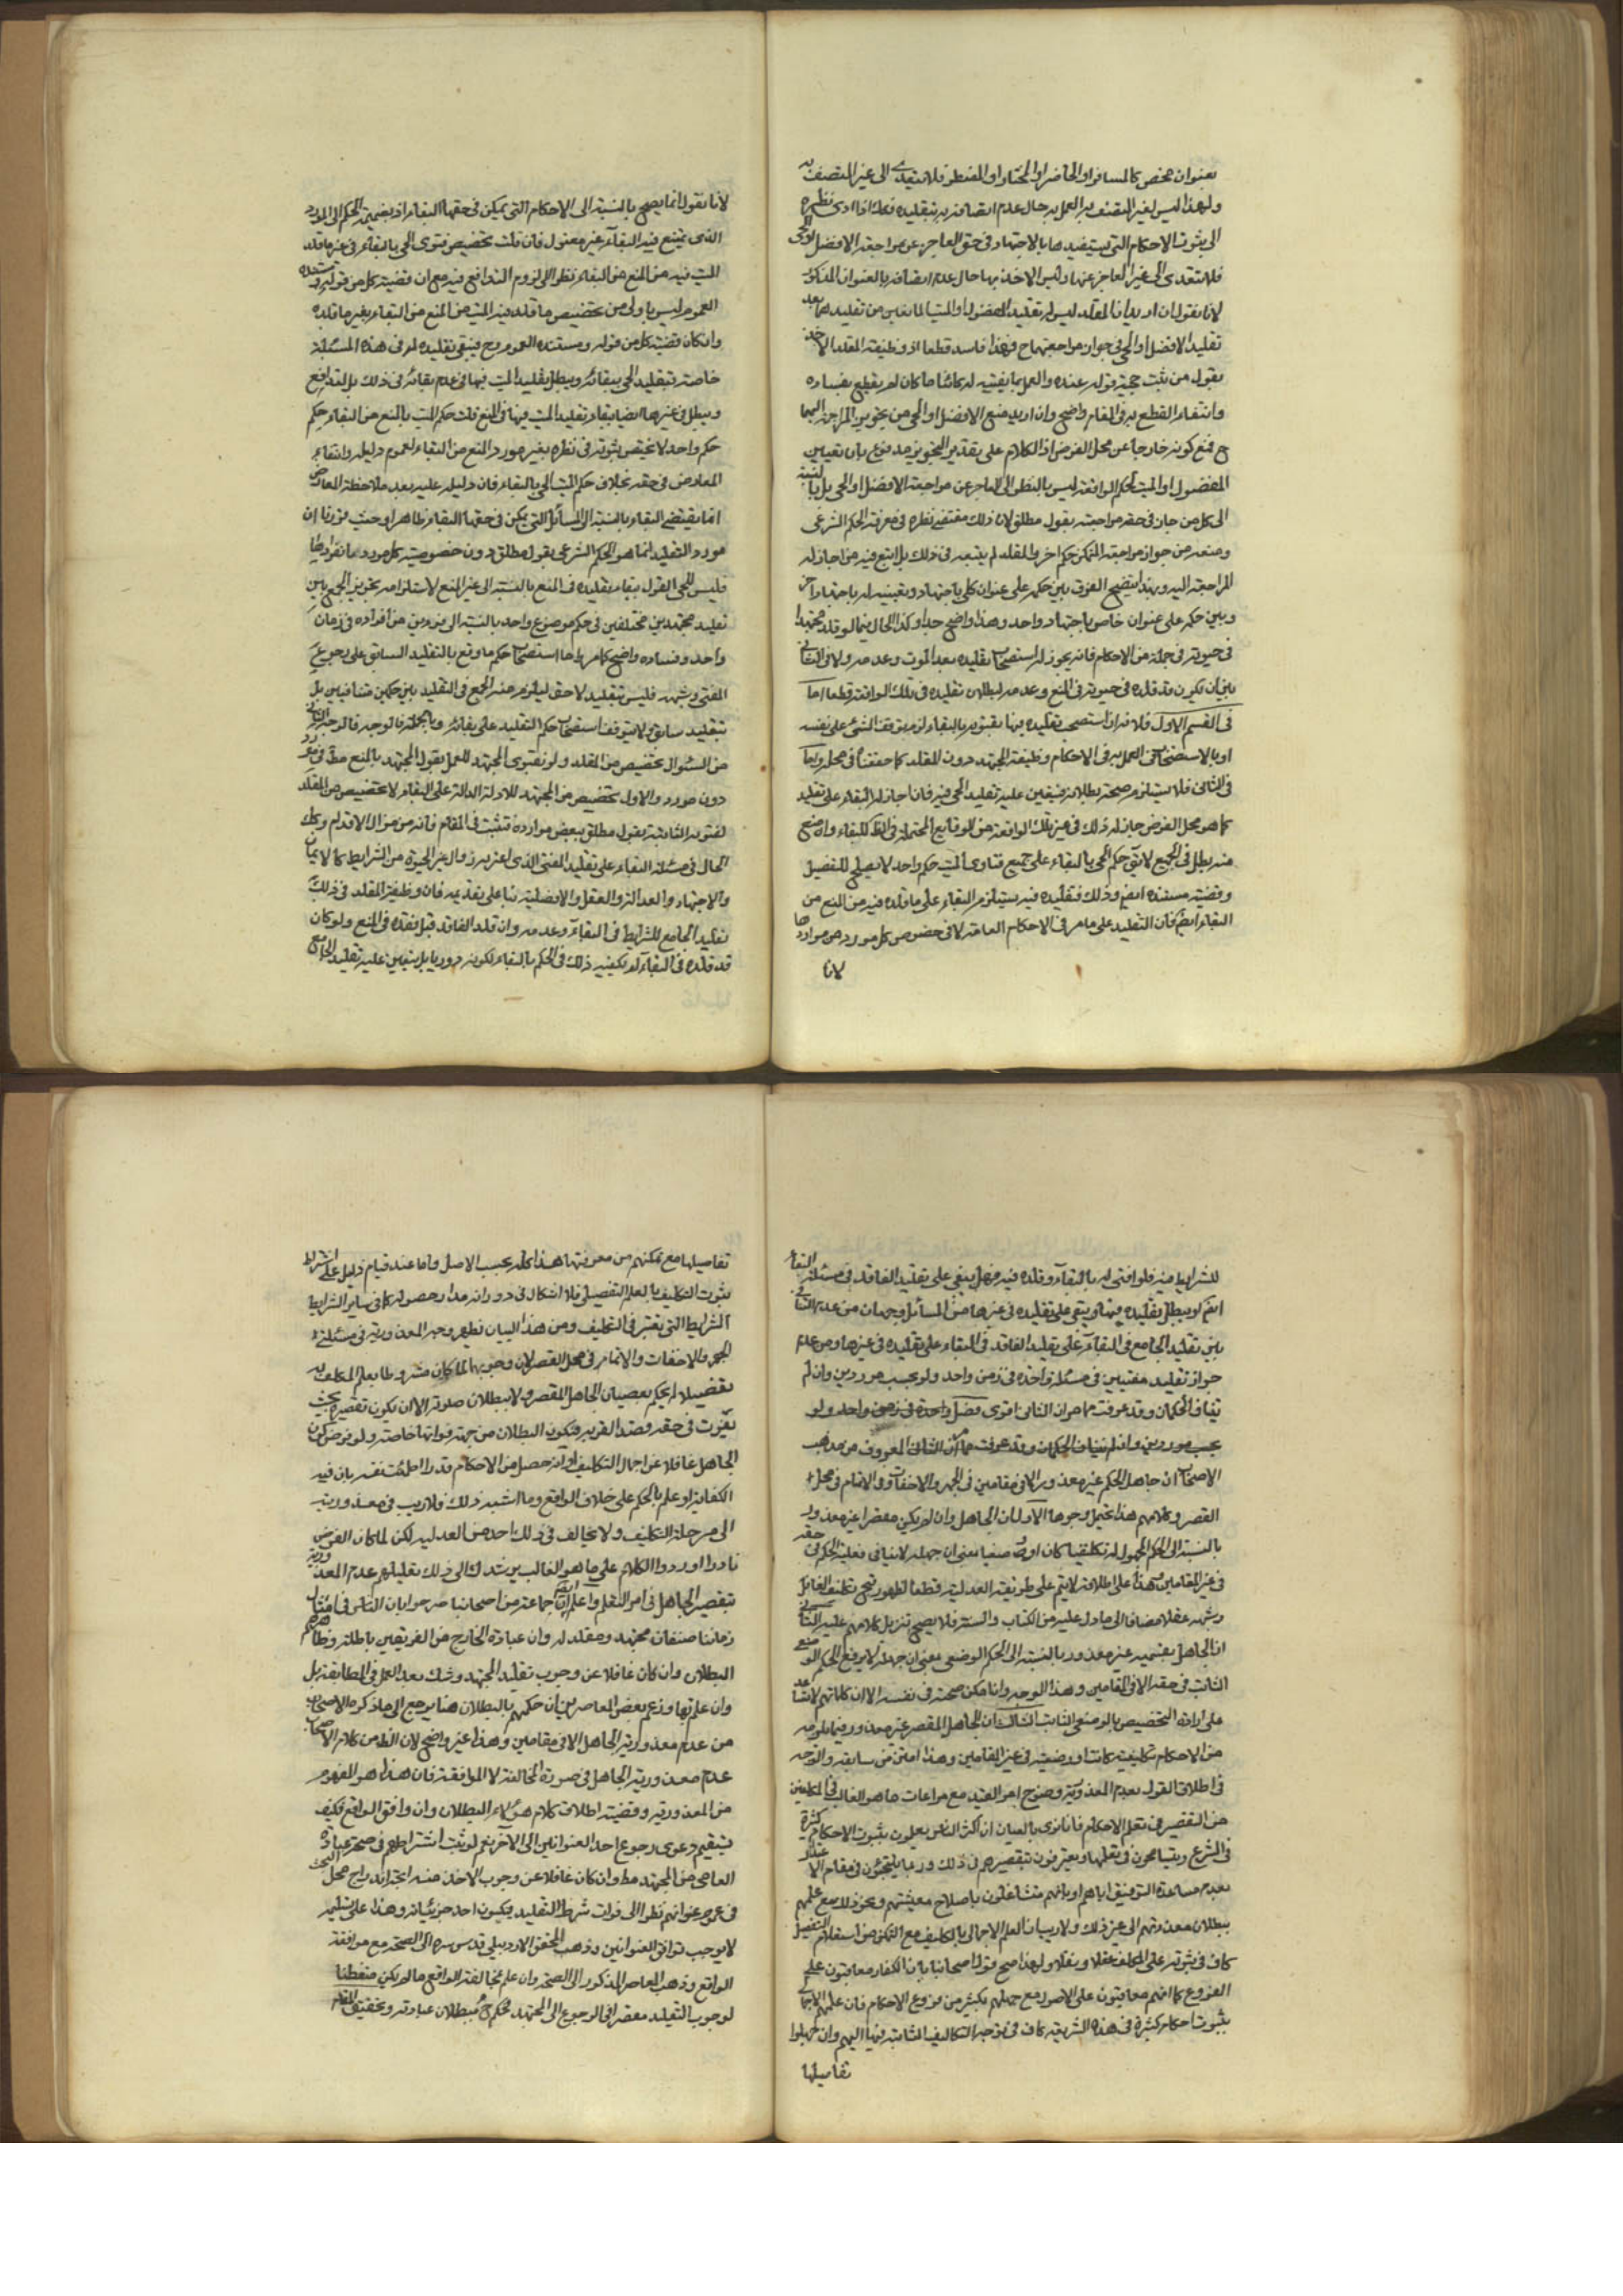 بعنوان مخص كالمسافر او الحاضر او المختار او المضطر فلا يتعدى الى غير المتصف به
ولهذا ليس لغير المتصف به العمل به حال عدم اتصافه به بتقليده فكذلك اذا ادى نظره
الى ثبوت الاحكام التى يستفيدها بالاجتهاد فى حق العاجز عن مراجعة الافضل او الحى
فلا تتعدى الى غير العاجز عنها وليس الاخذ بها حال عدم اتصافه بالعنوان المذكور
لانا نقول ان اريد ان المقلد ليس له تقليد المفضول او الميت المانعين من تقليدهما بعد
تقليد الافضل او الحى فى جواز مراجعتهما ح فهذا فاسد قطعا اذ وظيفة المقلد الاخذ
بقول من ثبت حجية قوله عنده والعمل بما يفتيه له كائنا ما كان لم يقطع بفساده
وانتفاء القطع به فى المقام واضح وان اريد منع الافضل او الحى من تجويز المراجعة اليهما
ح فمع كونه خارجا عن محل الفرض اذ الكلام على تقدير التجويز مدفوع بان تعيين
المفضول او الميت لحكم الواقعة ليس بالنظر الى العاجز عن مراجعة الافضل او الحى بل بالنسبة
الى كل من جاز فى حقه مراجعته بقول مطلق لان ذلك مقتضى نظره فى معرفة الحكم الشرعى
ومنعه من جواز مراجعة المتمكن حكم اخر والمقلد لم يتبعه فى ذلك بل اتبع فيه من اجاز له
المراجعة اليه وبهذا يتضح الفرق بين حكمه على عنوان كلى باجتهاد وتعيينه له باجتهاد اخر
وبين حكمه على عنوان خاص باجتهاد واحد وهذا واضح جدا وكذا الحال فيما لو قلد مجتهدا
فى حيوته فى جملة من الاحكام فانه يجوز له استصحاب تقليده بعد الموت وعدمه ولا فرق
بين ان يكون قد قلده فى حيوته فى المنع وعدمه لبطلان تقليده فى تلك الواقعة قطعا اما
فى القسم الاول فلانه ان استصحب تقليده فيها بفتويه بالبقاء لزم توقف الشئ على نفسه
او بالاستصحاب فالعمل به فى الاحكام وظيفة المجتهد دون المقلد كما حققناه فى محله واما
فى الثانى فلاستلزام صحته بطلانه فيتعين عليه تقليد الحى فيه فان اجاز له البقاء على تقليد
كما هو محل الفرض جاز له ذلك فى غير تلك الواقعة من الوقايع المحتملة
منه بطل فى الجميع لا يق حكم الحى بالبقاء على جميع فتاوى الميت حكم واحد لا يصلح للتفصيل
وقضية مستنده ايضا وذلك فتقليده فيه يستلزم البقاء على ما قلده فيه من المنع من
البقاء ايضا فان التقليد على ما مر فى الاحكام العامة لا فى خصوص كل مورد من مواردها
لانا
لانا نقول انما يصح بالنسبة الى الاحكام التى يمكن فى حقها البقاء اذ تعميم الحكم الى المورد
الذى يمتنع فيه البقاء غير معقول فان قلت تخصيص فتوى الحى بالبقاء فى غير ما قلد
الميت فيه من المنع من البقاء نظرا الى لزوم التدافع فيه مع ان قضية كل من قوله ومستنده
العموم ليس باولى من تخصيص ما قلد فيه الميت من المنع من البقاء بغير ما قلده
وان كان قضية كل من قوله ومستنده العموم وح فيبقى تقليده له فى هذه المسئلة
خاصة بتقليد الحى ببقائه ويبطل تقليد الميت فيها فى عدم بقائه فى ذلك بل لتدافع
ويبطل فى غيرها ايضا ببقاء تقليد الميت فيها فى المنع قلت حكم الميت بالمنع من البقاء حكم
حكم واحد لا يختص ثبوته فى نظره بغير مورد المنع من البقاء لعموم دليله وانتفاء
المعارض فى حقه بخلاف حكم الحى بالبقاء فان دليله عليه بعد ملاحظة المعارض
انما يقتضى البقاء بالنسبة الى المسائل التى يمكن فى حقها البقاء ظاهرا وحيث قررنا ان
مورد التقليد انما هو الحكم الشرعى بقول مطلق دون خصوصية كل مورد بانفرادها
فليس للحى القول ببقاء تقليده فى المنع بالنسبة الى غير المنع لاستلزامه تجويز الجمع بين
تقليد مجتهدين مختلفين فى حكم موضوع واحد بالنسبة الى فردين من افراده فى زمان
واحد وفساده واضح كما مر واما استصحاب حكم ما وقع بالتقليد السابق على رجوع
المفتى وشبهه فليس بتقليد لاحق ليلزم منه الجمع فى التقليد بين حكمين متنافيين بل
بتقليد سابق ولا يتوقف استصحاب حكم التقليد على بقائه وبالجملة فالوجه الثانى
من السئوال تخصيص من المقلد ولو بفتوى المجتهد للعمل بقول المجتهد بالمنع مط فى مورد
دون مورد والاول تخصيص من المجتهد للادلة الدالة على البقاء لا تخصيص من المقلد
لفتويه الثابتة بقول مطلق ببعض موارده فتثبت فى المقام فانه من مزال الاقدام وكك
الحال فى مسئلة البقاء على تقليد المفتى الذى اعتريه زوال غير الحيوة من الشرايط كالايمان
والاجتهاد والعدالة والعقل والافضلية بناء على تقديمه فان وظيفة المقلد فى ذلك
تقليد الجامع للشرايط فى البقاء وعدمه وان قلد الفاقد قبل فقده فى المنع ولو كان
قد قلده فى البقاء لم يكفيه ذلك فى الحكم بالبقاء لكونه دوريا بل يتعين عليه تقليد الجامع
للشرايط فيه فلو افتى له بالبقاء وقلده فيه فهل يبقى على تقليد الفاقد فى مسئلة البقاء
ايضا او يبطل تقليده فيها ويبقى على تقليده فى غيرها من المسائل وجهان من عدم التنافى
بين تقليد الجامع فى البقاء على تقليد الفاقد فى البقاء على تقليده فى غيرها ومن عدم
جواز تقليد مفتيين فى مسئلة واحدة فى زمن واحد ولو بحسب موردين وان لم
يتناف الحكمان وقد عرفت مما مر ان الثانى اقوى فصل واحدة فى زمن واحد ولو
بحسب موردين وان لم يتناف الحكمان وقد عرفت مما مر ان الثانى المعروف من مذهب
الاصحاب ان جاهل الحكم غير معذور الا فى مقامين فى الجهر والاخفات وفى الاتمام فى محل
القصر وكلامهم هذا يحتمل وجوها الاول ان الجاهل وان لم يكن مقصرا غير معذور
بالنسبة الى الحكم المجهول له تكليفيا كان او وضعيا بمعنى ان جهله لا ينافى فعلية الحكم فى حقه
فى غير المقامين وهذا على اطلاقه لا يتم على طريقة العدلية قطعا لظهور قبح تكليف الغافل
وشبهه عقلا مضافا الى ما دل عليه من الكتاب والسنة فلا يصح تنزيل كلامهم عليه الثانى
ان الجاهل بقسميه غير معذور بالنسبة الى الحكم الوضعى بمعنى ان جهله لا يرفع الحكم الوضعى
الثابت فى حقه الا فى المقامين وهذا الوجه وان امكن صحته فى نفسه الا ان كلماتهم لا تساعد
على ارادة التخصيص بالوضعى الثالث ان الجاهل المقصر غير معذور فيما يلزمه
من الاحكام تكليفية كانت او وضعية فى غير المقامين وهذا امتن من سابقه والوجه
فى اطلاق القول بعدم المعذورية وضوح امر القيد مع مراعات ما هو الغالب فى المكلفين
من التقصير فى تعلم الاحكام فانا نرى بالعيان ان اكثر الناس يعلمون بثبوت الاحكام كثيرة
فى الشرع ويتسامحون فى تعلمها ويعترفون بتقصيرهم فى ذلك وربما يلتجئون فى مقام الاعتذار
بعدم مساعدة التوفيق اياهم او بانهم متشاغلون باصلاح معيشتهم ونحو ذلك مع علمهم
ببطلان معذرتهم الى غير ذلك ولا ريب ان العلم الاجمالى بالتكليف مع التمكن من استعلام التفصيل
كاف فى ثبوته على المكلف عقلا ونقلا ولهذا صح قول اصحابنا بان الكفار معاقبون على
الفروع كما انهم معاقبون على الاصول مع جهلهم بكثير من فروع الاحكام فان علمهم الاجمالى
بثبوت احكام كثيرة فى هذه الشريعة كاف فى توجه التكاليف الثابتة فيها اليهم وان جهلوا
تفاصيلها
تفاصيلها مع تمكنهم من معرفتها هذا كله بحسب الاصل واما عند قيام دليل على اشتراط
ثبوت التكليف بالعلم التفصيلى فلا اشكال فى دورانه مدار حصوله كما فى ساير الشرايط
الشرايط التى يعتبر فى التكليف ومن هذا البيان يظهر وجه المعذورية فى مسئلة
الجهر والاخفات والاتمام فى محل القصر لان وجوبها لما كان مشروطا بعلم المكلف به
تفصيلا لم يحكم بعصيان الجاهل المقصر ولا ببطلان صلوته الا ان يكون تقصيره بحيث
يفوت فى حقه قصد القربة فيكون البطلان من جهة فواتها خاصة ولو فرض كون
الجاهل غافلا عن اجمال التكليف او انه حصل من الاحكام قدرا اطمئنت نفسه بان فيه
الكفاية او علم بالحكم على خلاف الواقع وما اشبه ذلك فلا ريب فى معذوريته
الى مرحلة التكليف ولا يخالف فى ذلك احد من العدلية لكن لما كان الفرض
نادرا اوردوا الكلام على ما هو الغالب يرشدك الى ذلك تعليلهم عدم المعذورية
بتقصير الجاهل فى امر التعلم واعلم ايضا ان جماعة من اصحابنا صرحوا بان الناس فى امثال
زماننا صنفان مجتهد ومقلد له وان عبادة الخارج من الفريقين باطلة وظاهرهم
البطلان وان كان غافلا عن وجوب تقليد المجتهد وشك بعد العمل فى المطابقة بل
وان علم بها وزعم بعض المعاصرين ان حكمهم بالبطلان هنا يرجع الى ما ذكره الاصحاب
من عدم معذورية الجاهل الا فى مقامين وهذا غير واضح لان الظ من كلام الاصحاب
عدم معذورية الجاهل فى صورة المخالفة لا الموافقة فان هذا هو المفهوم
من المعذورية وقضية اطلاق كلام هؤلاء البطلان وان وافق الواقع فكيف
يستقيم دعوى رجوع احد العنوانين الى الاخر نعم لو ثبت اشتراطهم فى صحة عبادة
العامى من المجتهد مط وان كان غافلا عن وجوب الاخذ منه اتجه اندراج محل البحث
فى عموم عنوانهم نظرا الى فوات شرط التقليد فيكون احد جزئياته وهذا على تسليمه
لا يوجب توافق العنوانين وذهب المحقق الاردبيلى قدس سره الى الصحة مع موافقة
الواقع وذهب المعاصر المذكور الى الصحة وان علم مخالفته للواقع ما لم يكن متفطنا
لوجوب التقليد مقصرا فى الرجوع الى المجتهد فحكم ح ببطلان عبادته وتحقيق المقام